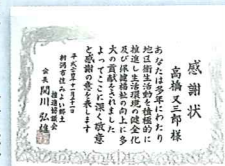 感謝状
高橋又三郎様
あなたは多年にわたり
地区衛生活動を積極的に
推進し生活環境の健全化
及び保健福祉の向上に多
大の貢献をされました
よってここに深く敬意
と感謝の意を表します
平成
新潟市
会長 関川弘雄